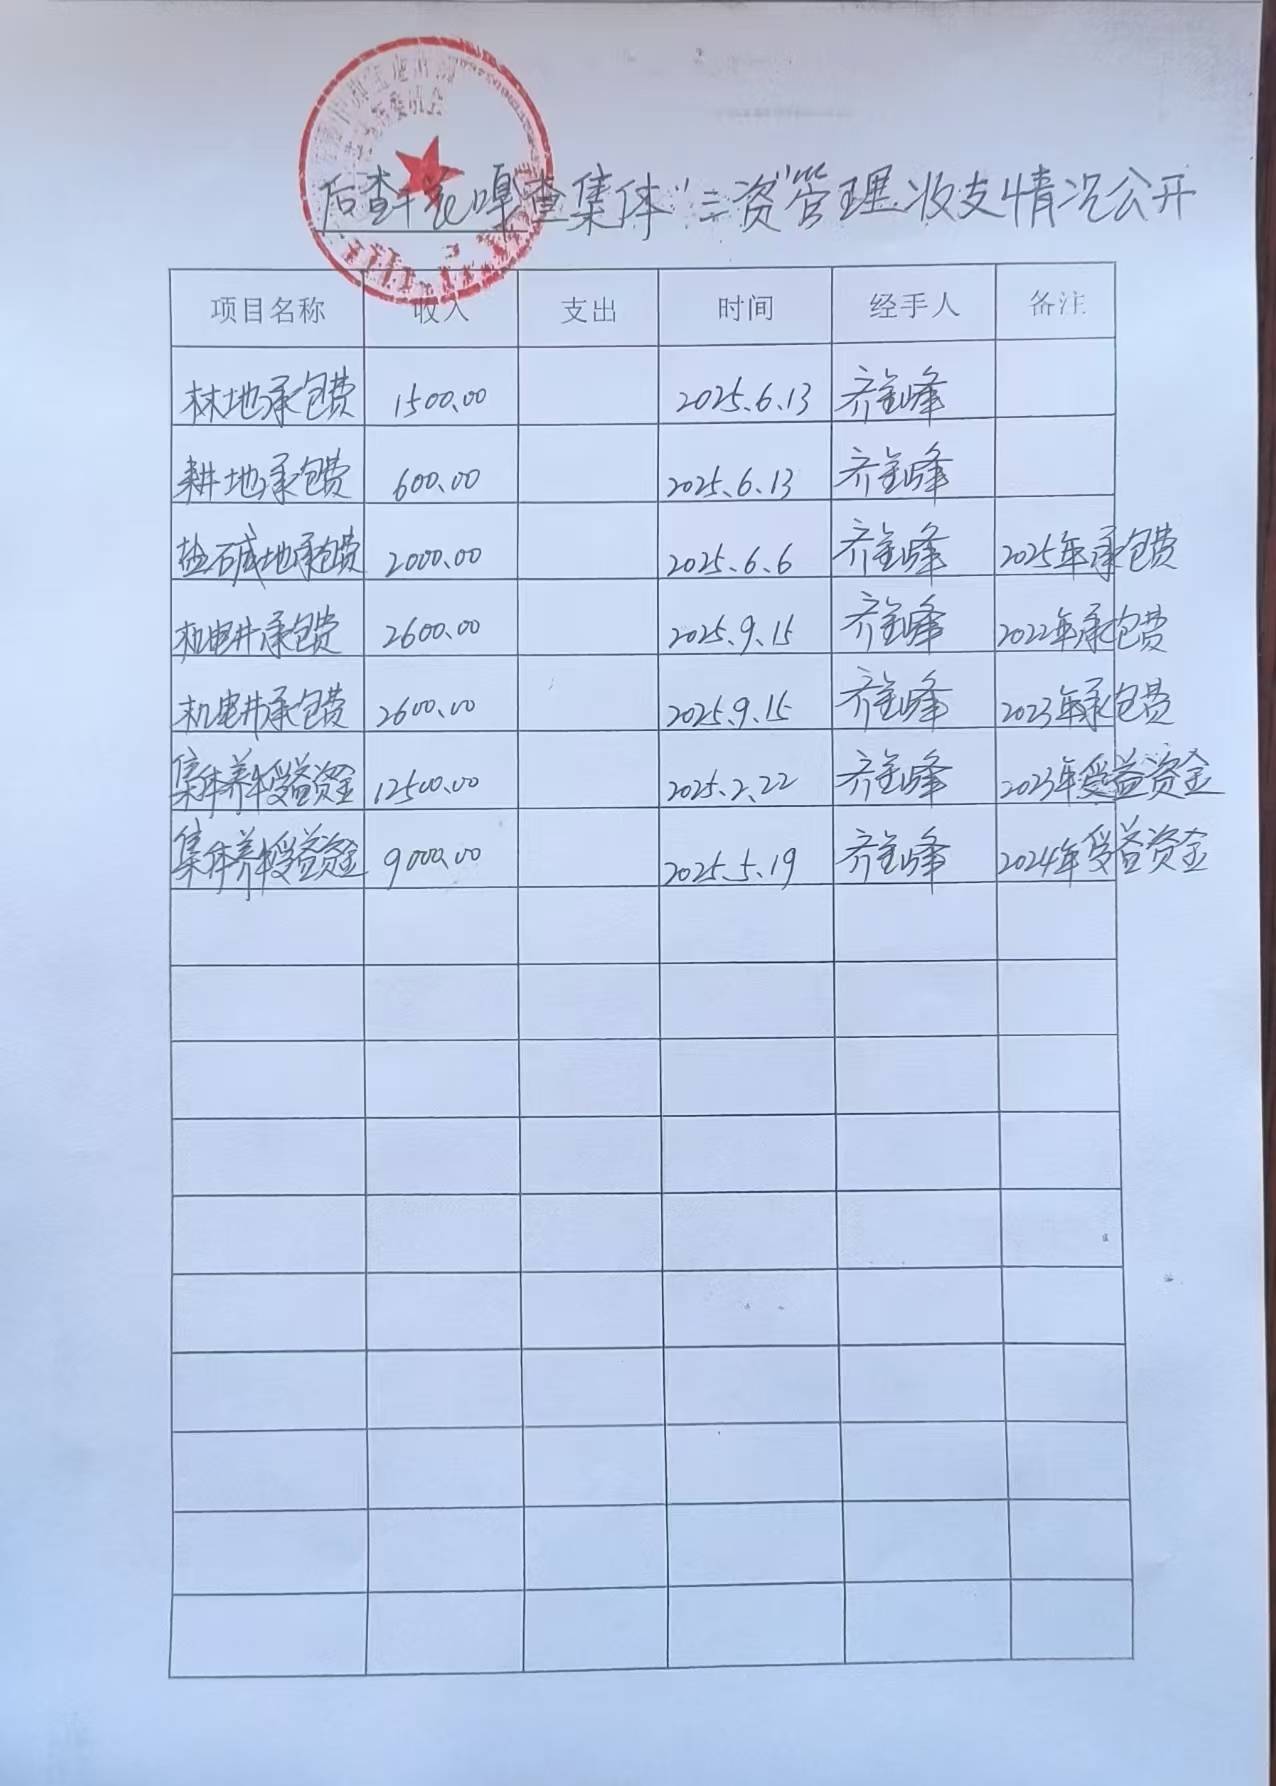 后查干花嘎查集体"三资"管理收支情况公开
项目名称 收入 支出 时间 经手人 备注
林地承包费 1500.00 2025.6.13
耕地承包费 600.00 2025.6.13
盐碱地承包费 2000.00 2025.6.6 2025年承包费
机电井承包费 2600.00 2025.9.15 2022年承包费
机电井承包费 2600.00 2025.9.15 2023年承包费
集体养牛受益资金 12500.00 2025.2.22 2023年受益资金
集体养牛受益资金 9000.00 2025.5.19 2024年受益资金